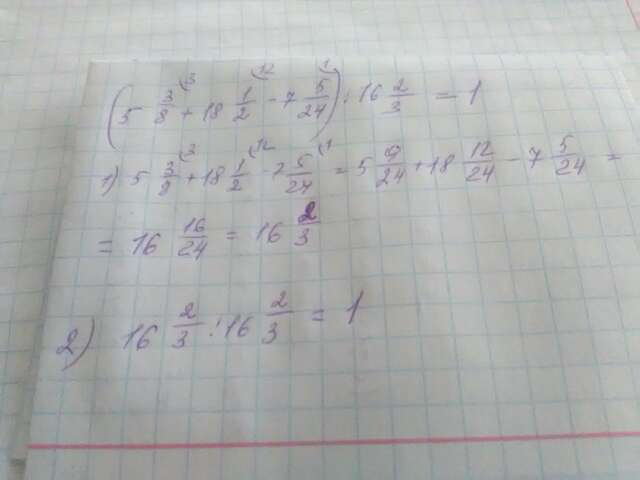 (5 3/8 ⁽³ + 18 1/2 ⁽¹² - 7 5/24 ⁽¹) : 16 2/3 = 1
1) 5 3/8 ⁽³ + 18 1/2 ⁽¹² - 7 5/24 ⁽¹ = 5 9/24 + 18 12/24 - 7 5/24 =
= 16 16/24 = 16 2/3
2) 16 2/3 : 16 2/3 = 1